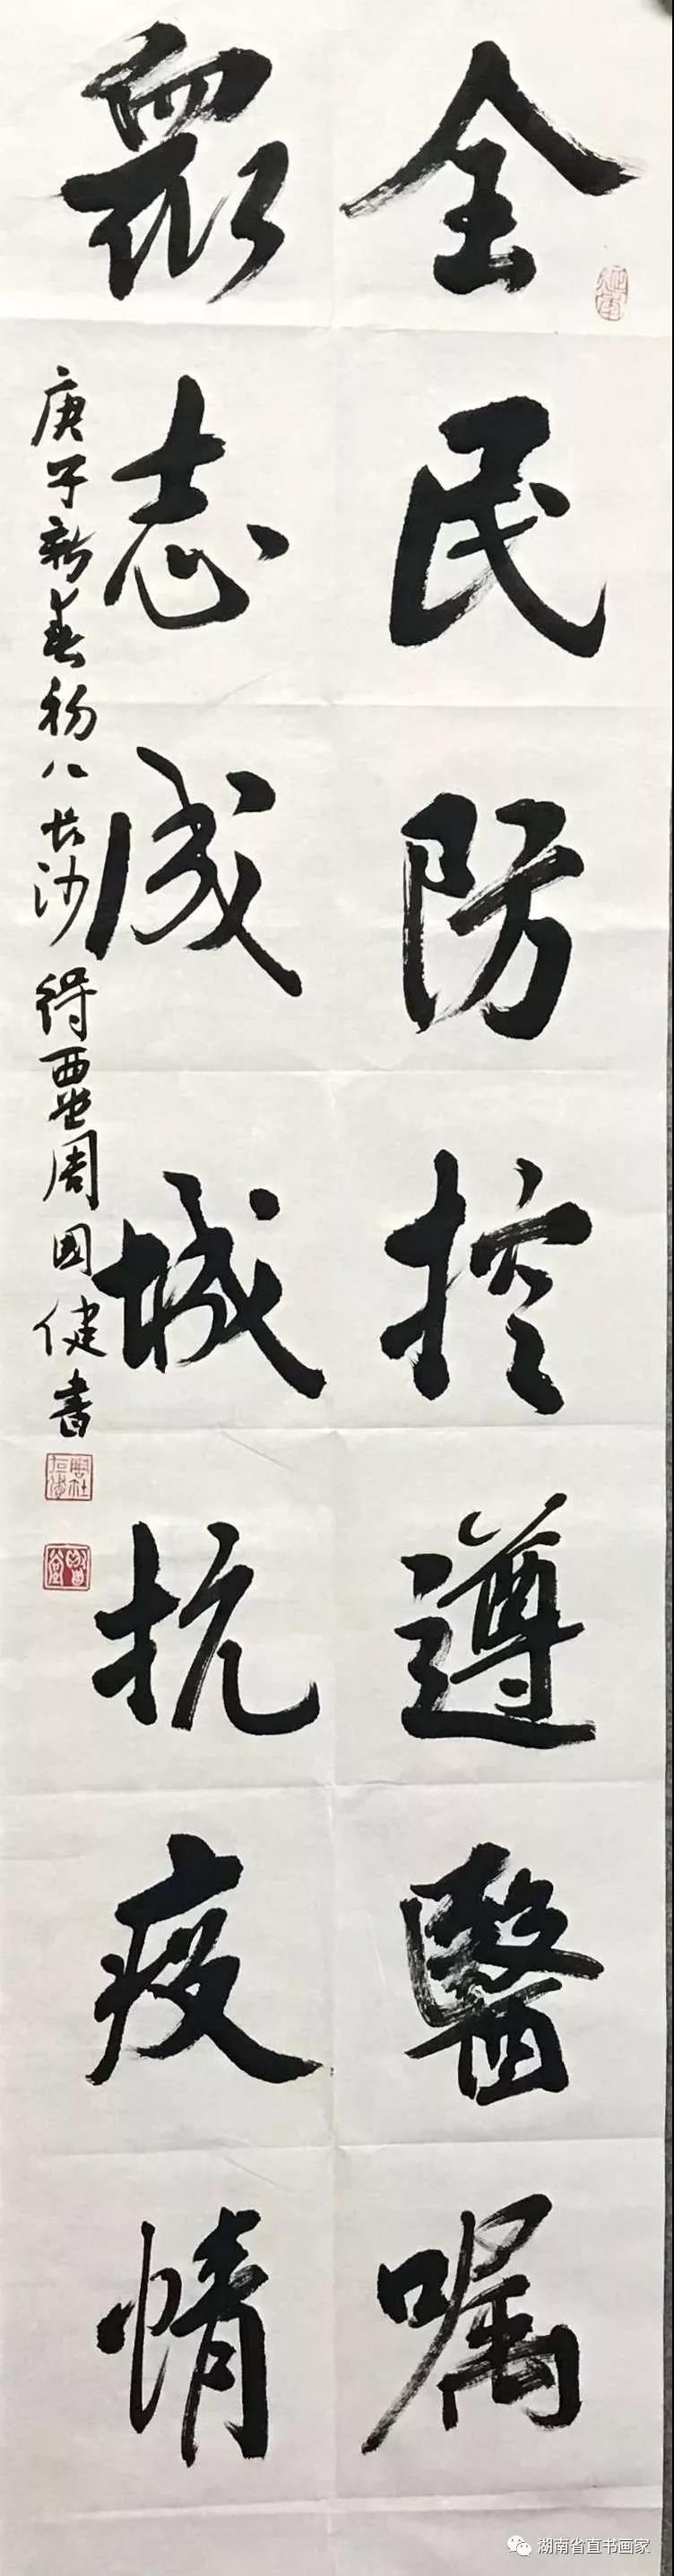 全民防控遵醫嘱
眾志成城抗疫情
庚子新春初八长沙得璽周國健書
湖南省直书画家